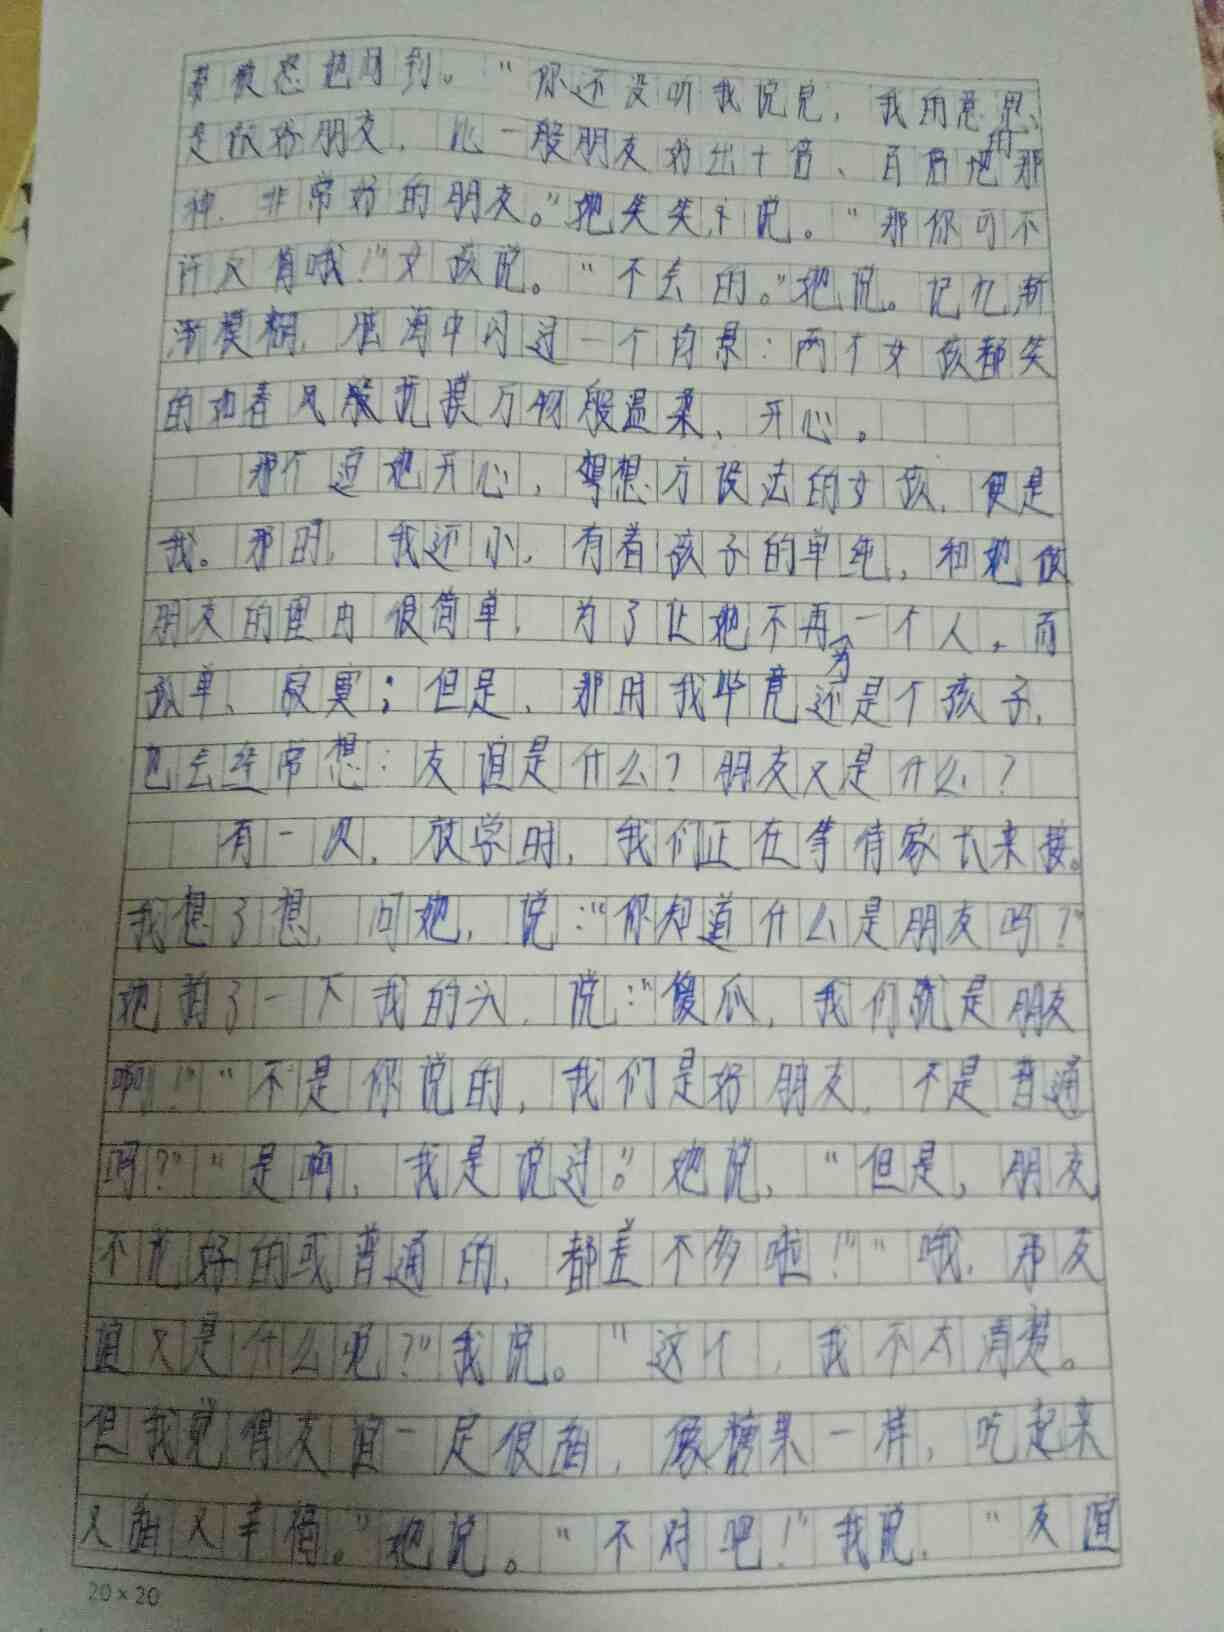 要被惹她闷到。“你还没听我说完，我的意思、
是做好朋友，比一般朋友好出十倍、百倍地的那
种，非常好的朋友。”她笑笑，说。“那你可不
许反悔哦！”女孩说。“不会的。”她说。记忆渐
渐模糊，脑海中闪过一个背景：两个女孩都笑
的如春风般抚摸万物般温柔、开心。
那个逗她开心，想想方设法的女孩，便是
我。那时，我还小，有着孩子的单纯，和她做
朋友的理由很简单，为了让她不再为一个人，而
孤单、寂寞；但是，那时我毕竟还是个孩子，
也会经常想：友谊是什么？朋友又是什么？
有一次，放学时，我们正在等待家长来接。
我想了想，问她，说：“你知道什么是朋友吗？”
她敲了一下我的头，说：“傻瓜，我们就是朋友
啊！”“不是你说的，我们是好朋友，不是普通
吗？”“是啊，我是说过。”她说，“但是，朋友
不论好的或普通的，都差不多啦！”“哦，那友
谊又是什么呢？”我说。“这个，我不太清楚。
但我觉得友谊一定很甜，像糖果一样，吃起来
又甜又幸福。”她说。“不对吧！”我说，“友谊
20×20